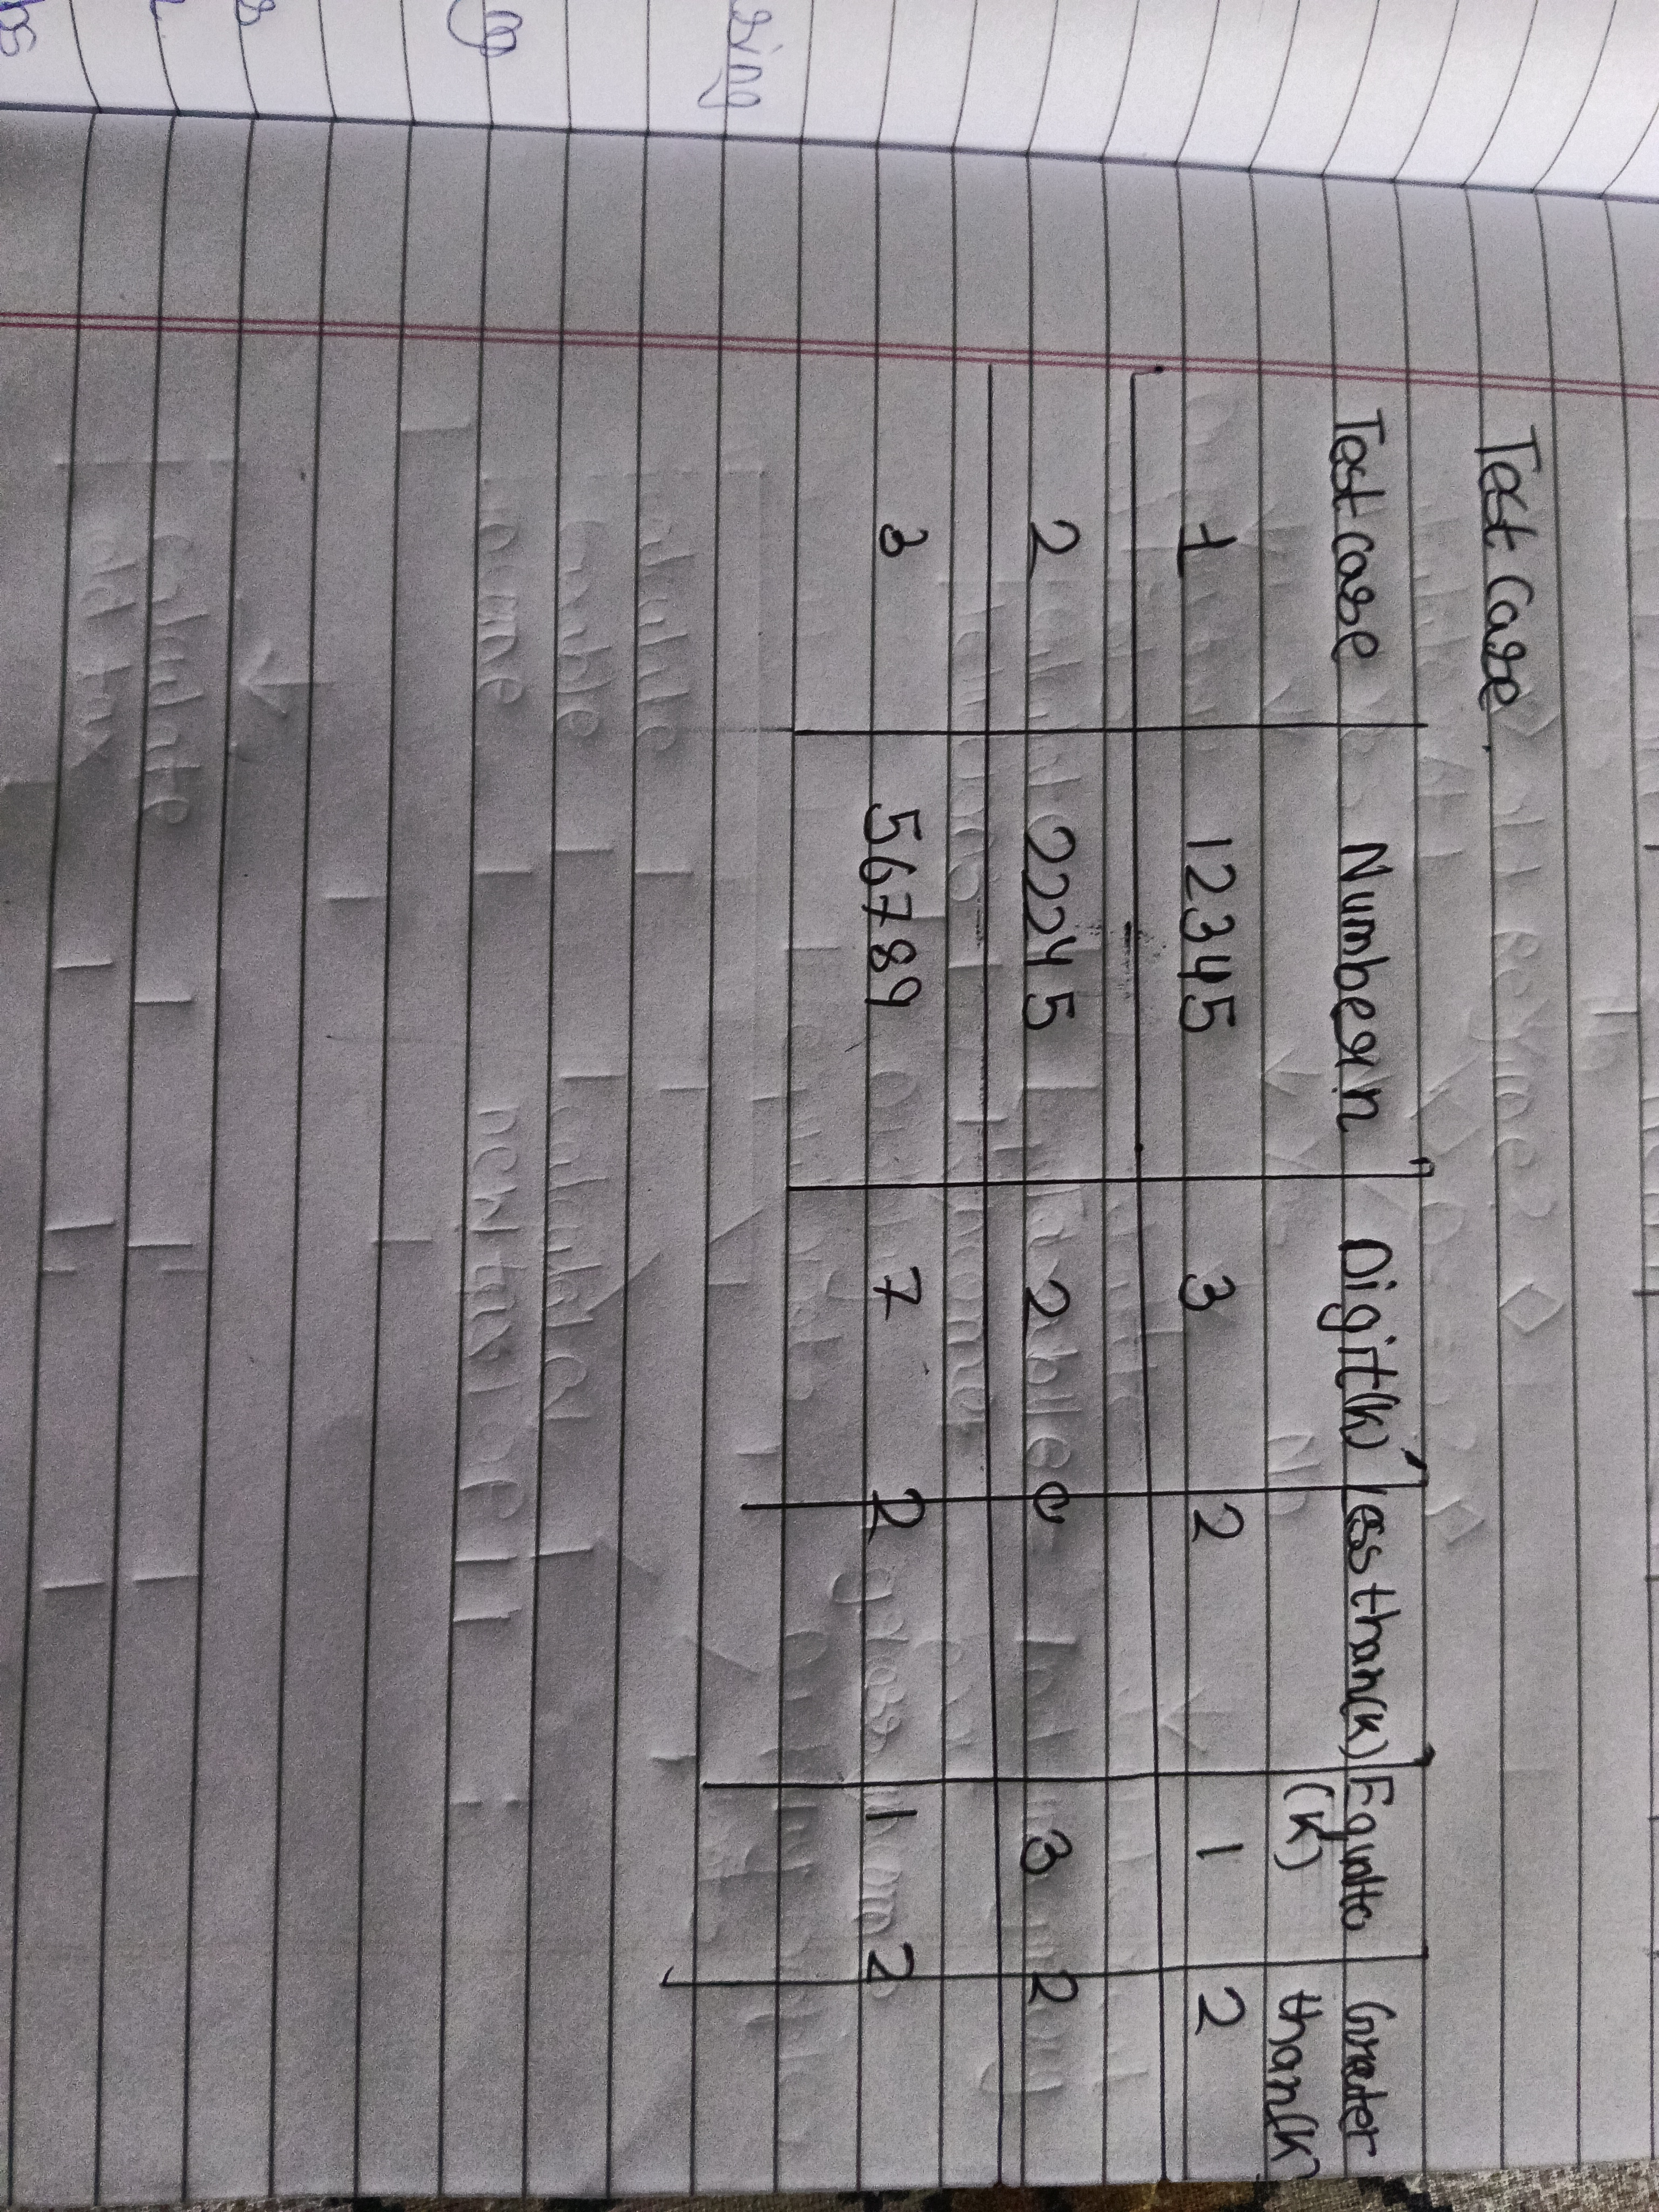 Test Case.
Test case Number n Digit(k) less than(k) Equalto (k) Greater than(k)
1 12345 3 2 1 2
2 22245 2 0 3 2
3 56789 7 2 1 2